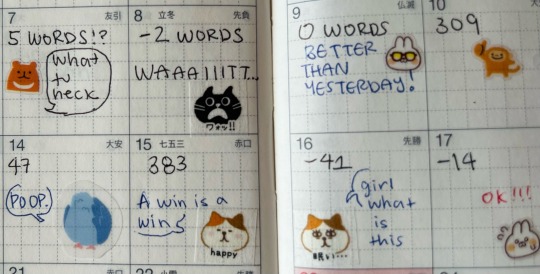 7 友引
5 WORDS!?
what
tu
heck
8 立冬 先負
-2 WORDS
WAAAIIITT...
ワォッ!!
9 仏滅
0 WORDS
BETTER
THAN
YESTERDAY!
10
309
14 大安
47
POOP.
15 七五三 赤口
383
A win is a
wins
happy
16 先勝
-41
girl
what
is
this
眠い…
17
-14
OK!!!